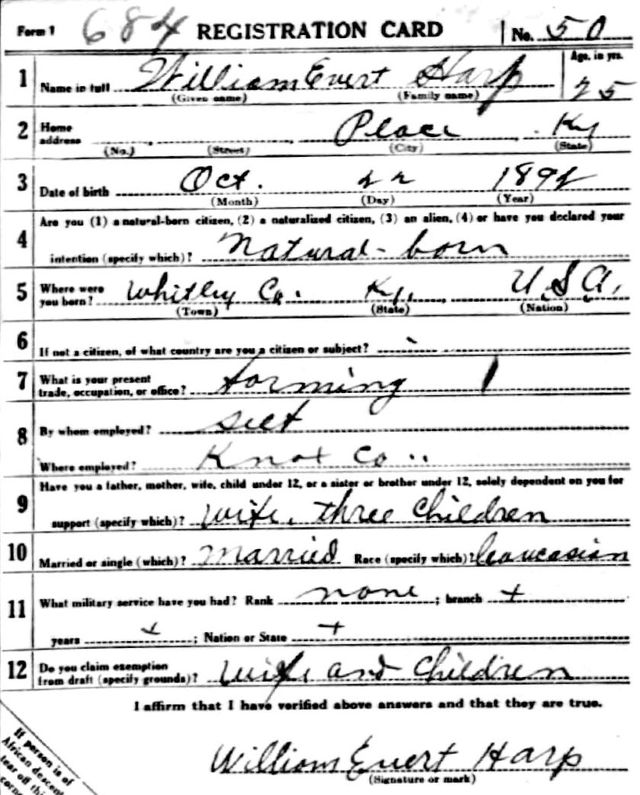 Form 1 684 REGISTRATION CARD No. 50
1 Name in full William Evert Harp Age, in yrs. 25
(Given name) (Family name)
2 Home address Place Ky
(No.) (Street) (City) (State)
3 Date of birth Oct. 22 1892
(Month) (Day) (Year)
Are you (1) a natural-born citizen, (2) a naturalized citizen, (3) an alien, (4) or have you declared your
4 intention (specify which)? Natural-born
5 Where were you born? Whitley Co. Ky. U.S.A.
(Town) (State) (Nation)
6 If not a citizen, of what country are you a citizen or subject?
7 What is your present trade, occupation, or office? farming
8 By whom employed? self
Where employed? Knox Co..
Have you a father, mother, wife, child under 12, or a sister or brother under 12, solely dependent on you for
9 support (specify which)? wife, three children
10 Married or single (which)? Married Race (specify which)? Caucasian
11 What military service have you had? Rank none ; branch +
years + ; Nation or State +
12 Do you claim exemption from draft (specify grounds)? wife and children
I affirm that I have verified above answers and that they are true.
William Evert Harp
(Signature or mark)
If person is of
African descent
tear off this
corner